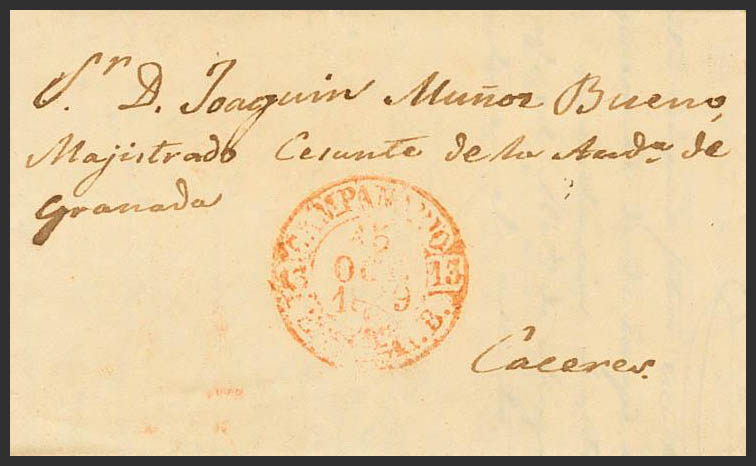 S.r D. Joaquin Muñoz Bueno,
Majistrado Cesante de la Aud.a de
Granada
CAMPANARIO
15
OCT
13
Caceres.